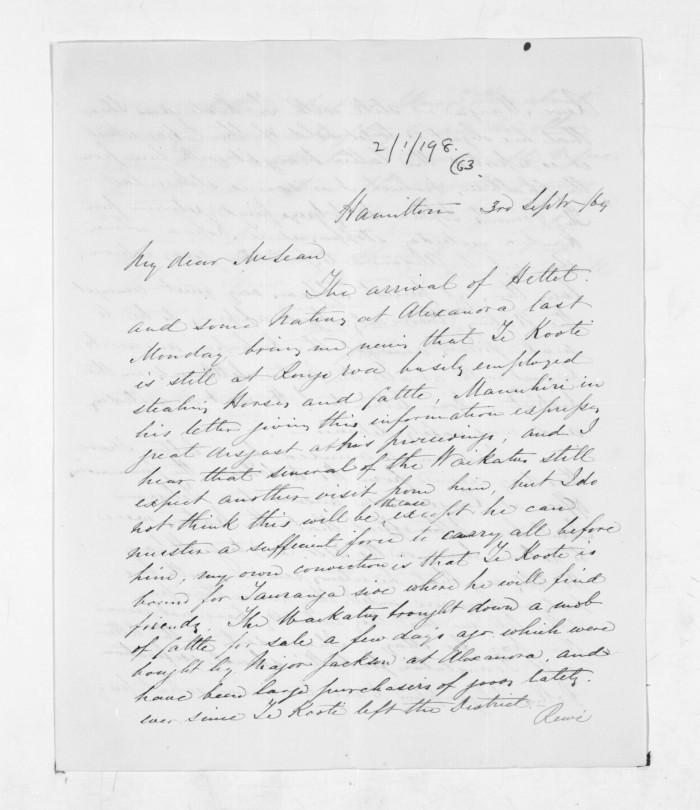 2/1/198.
(63.
Hamilton 3rd Septr /69
My dear McLean
The arrival of Hettit.
and some Natives at Alexanora last
Monday bring me news that Te Kooti
is still at Ronge roa busily employed
stealing Horses and Cattle, Manuhiri in
his letter giving this information expresses
great disgust at his proceedings, and I
hear that several of the Waikatus still
expect another visit from him, but I do
not think this will be the case, except he can
muster a sufficient force to carry all before
him, my own conviction is that Te Kooti is
bound for Tauranga side where he will find
friends. The Waikatus brought down a mob
of Cattle for sale a few days ago which were
bought by Major Jackson at Alexanora, and
have been large purchasers of goods lately.
ever since Te Kooti left the District
Rewi